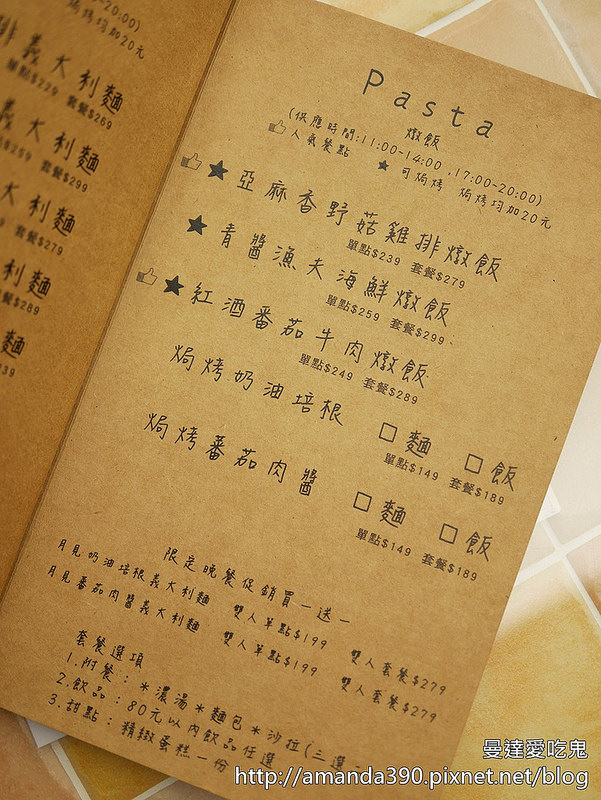 0-20:00)
焗烤均加20元
排義大利麵
單點$229 套餐$269
義大利麵
$259 套餐$299
大利麵
套餐$279
利麵
套餐$289
麵
Pasta
燉飯
(供應時間:11:00-14:00,17:00-20:00)
人氣餐點 ★可焗烤 焗烤均加20元
★亞麻香野菇雞排燉飯
單點$239 套餐$279
★青醬漁夫海鮮燉飯
單點$259 套餐$299
★紅酒番茄牛肉燉飯
單點$249 套餐$289
焗烤奶油培根 □麵 □飯
單點$149 套餐$189
焗烤番茄肉醬 □麵 □飯
單點$149 套餐$189
限定晚餐促銷買一送一
月見奶油培根義大利麵 雙人單點$199 雙人套餐$279
月見番茄肉醬義大利麵 雙人單點$199 雙人套餐$279
套餐選項
1.附餐:*濃湯*麵包*沙拉(三選一
2.飲品:80元以內飲品任選
3.甜點:精緻蛋糕一份
曼達愛吃鬼
http://amanda390.pixnet.net/blog